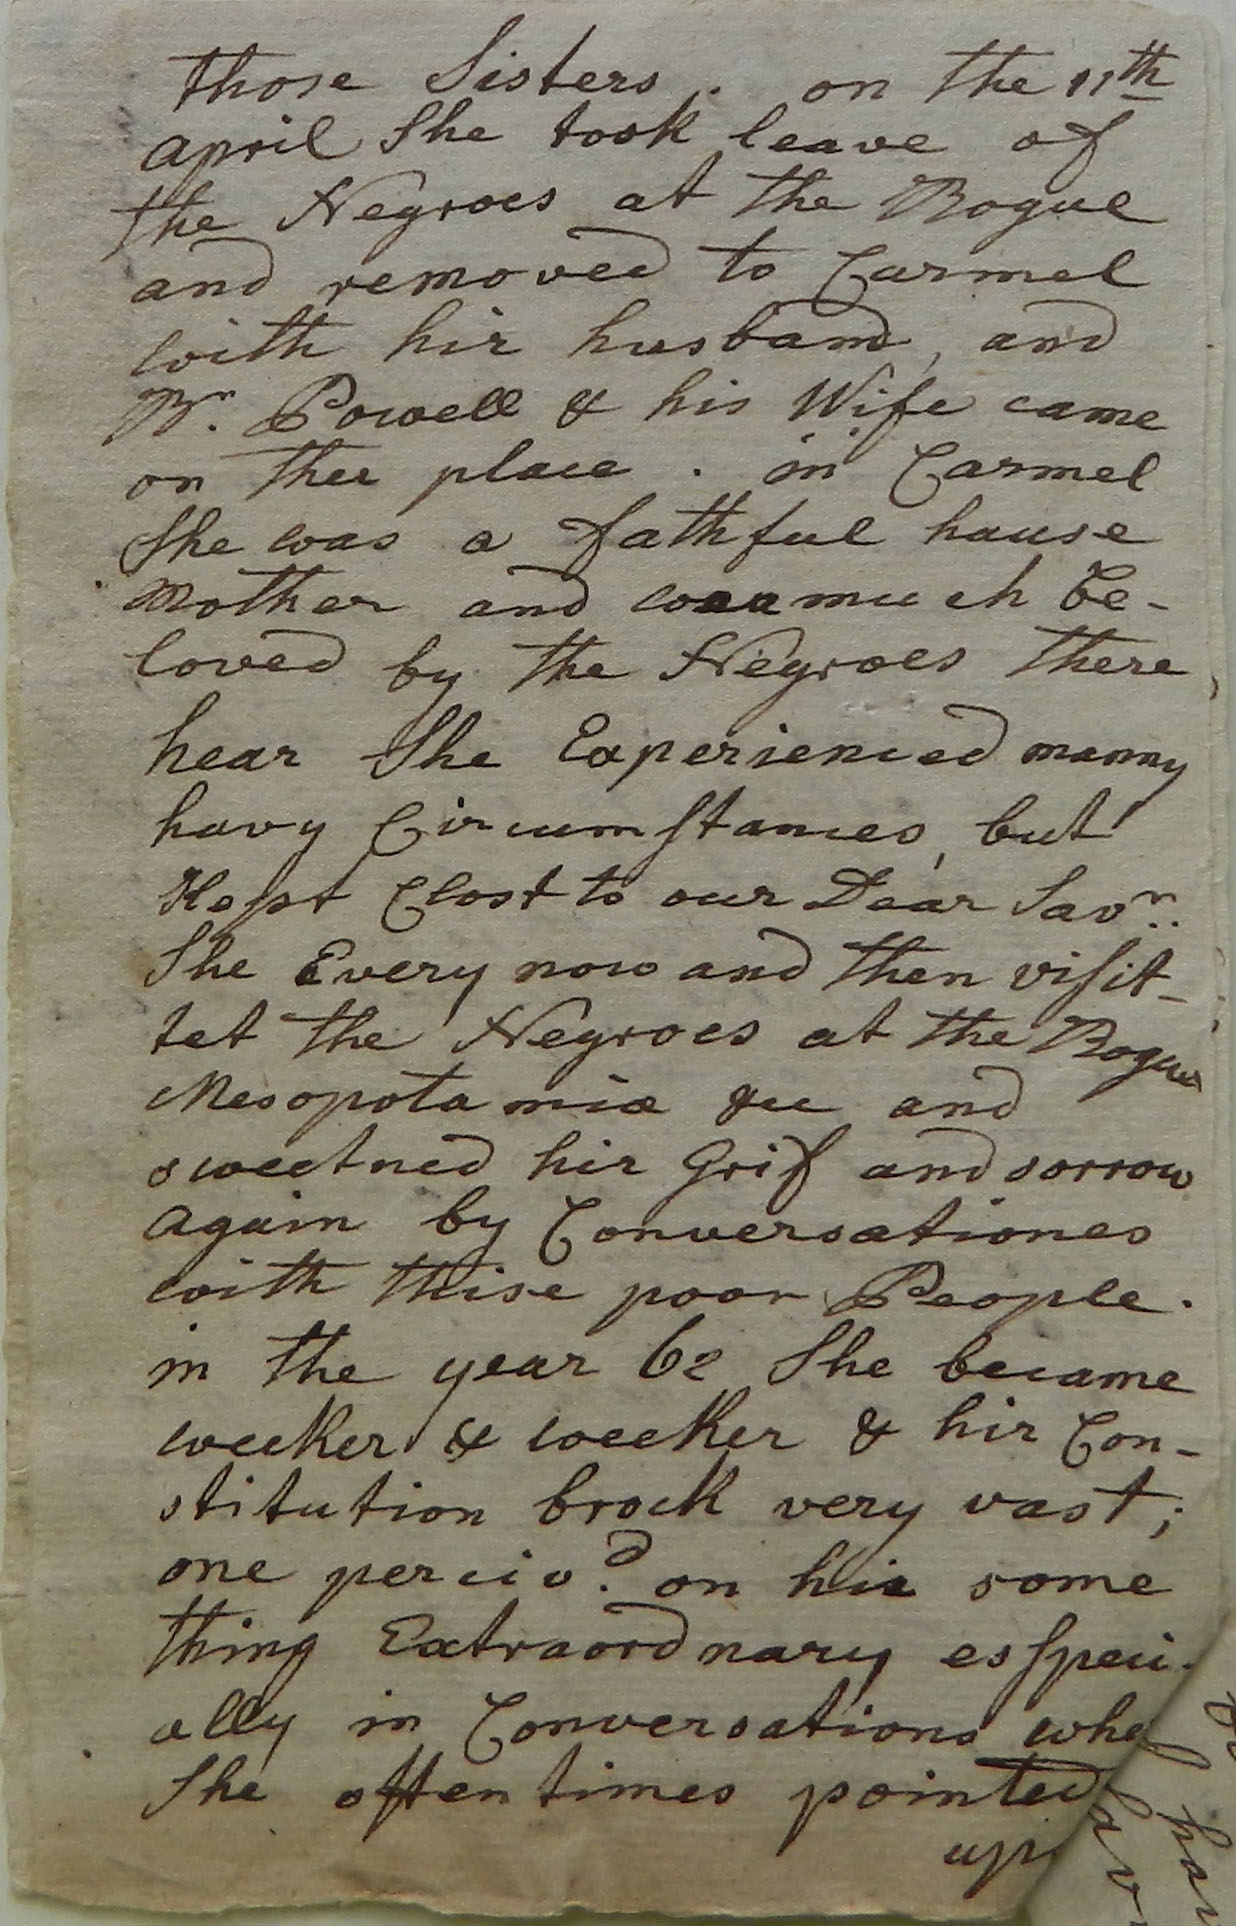 those Sisters. on the 11th
april She took leave of
the Negroes at the Bogue
and removed to Carmel
with hir husband, and
Br. Powell & his Wife came
on thee place. in Carmel
She was a fathful hause
Mother and was much be-
loved by the Negroes there,
hear She Experienced manny
havy Circumstances, but
Kept Clost to our Dear Savr.
She Every now and then visit-
tet the Negroes at the Bogue
Mesopotamia &cc and
sweetned hir Grif and sorrow
again by Conversationes
with thise poor People.
in the year 62 She became
weeker & weeker & hir Con-
stitution brock very vast;
one perciv'd on hir some
thing Extraordnary especi-
ally in Conversations
She oftentimes pointed